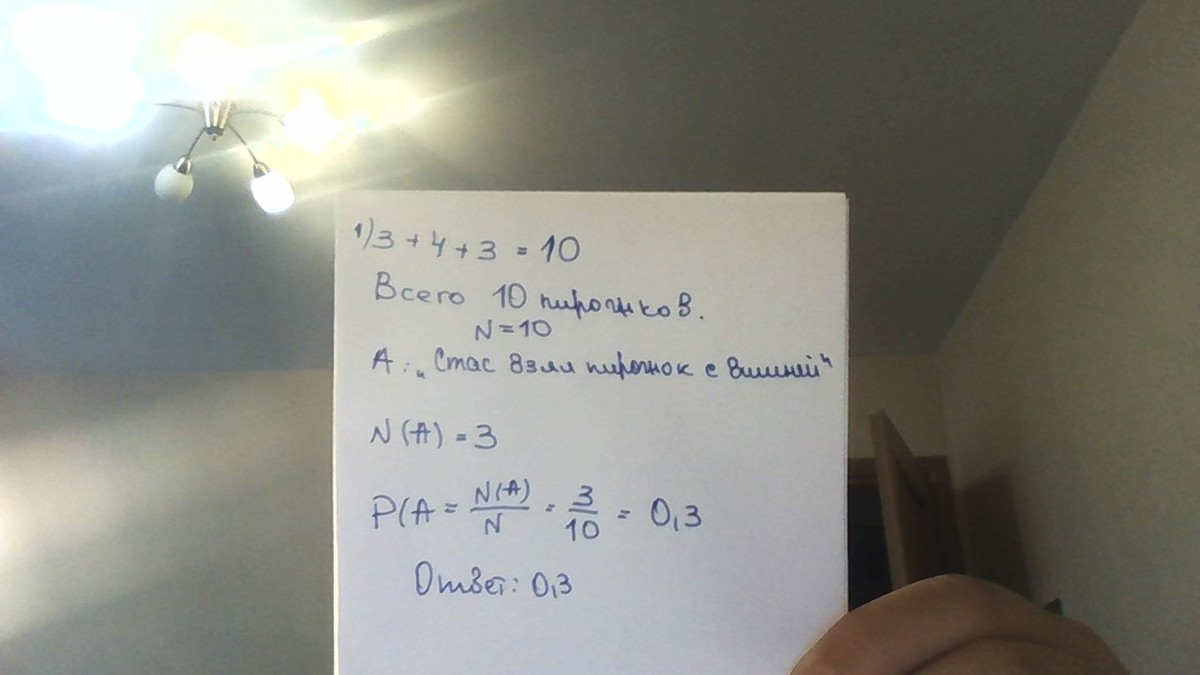 1) 3 + 4 + 3 = 10
Всего 10 пирожков.
N = 10
A: „Стас взял пирожок с вишней"
N(A) = 3
P(A = N(A)/N = 3/10 = 0,3
Ответ: 0,3